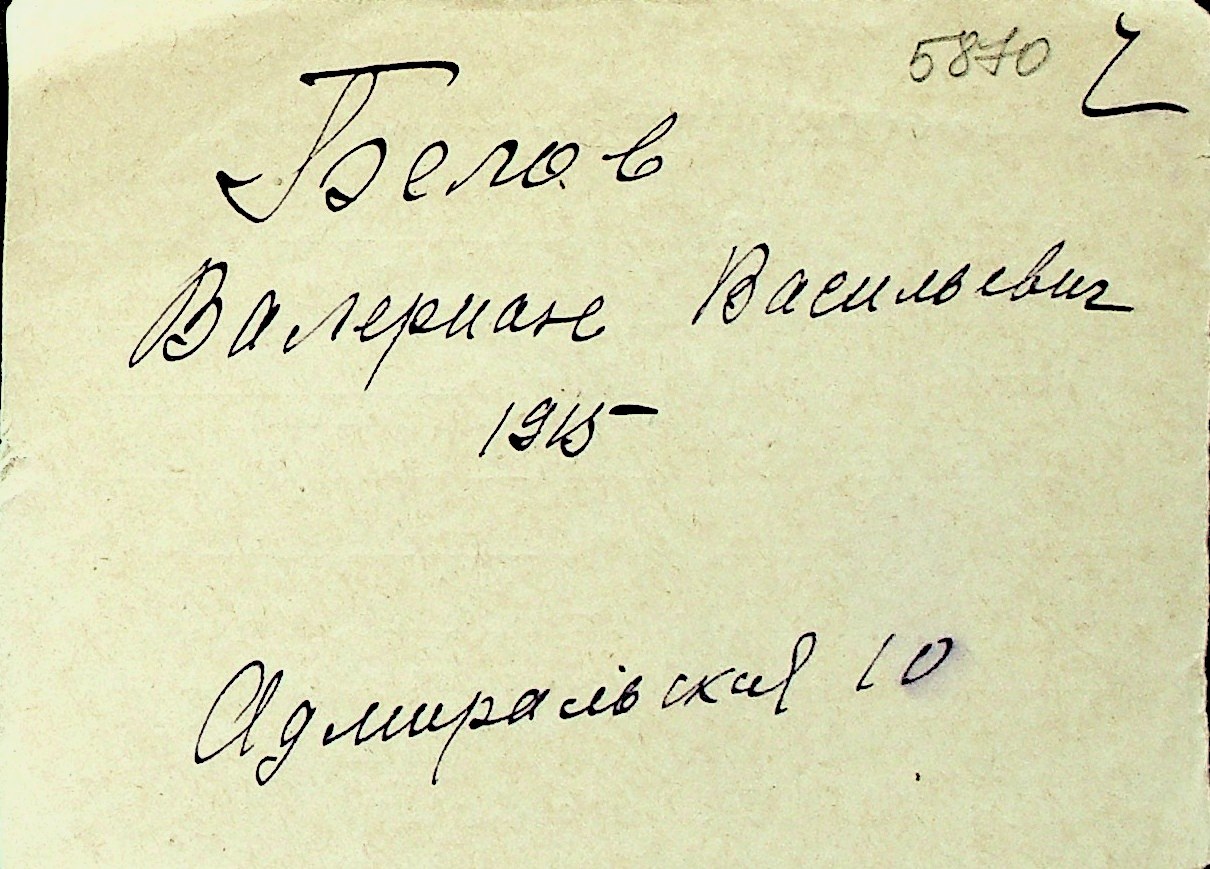 5870
Белов
Валериан Васильевич
1915
Адмиральская 10